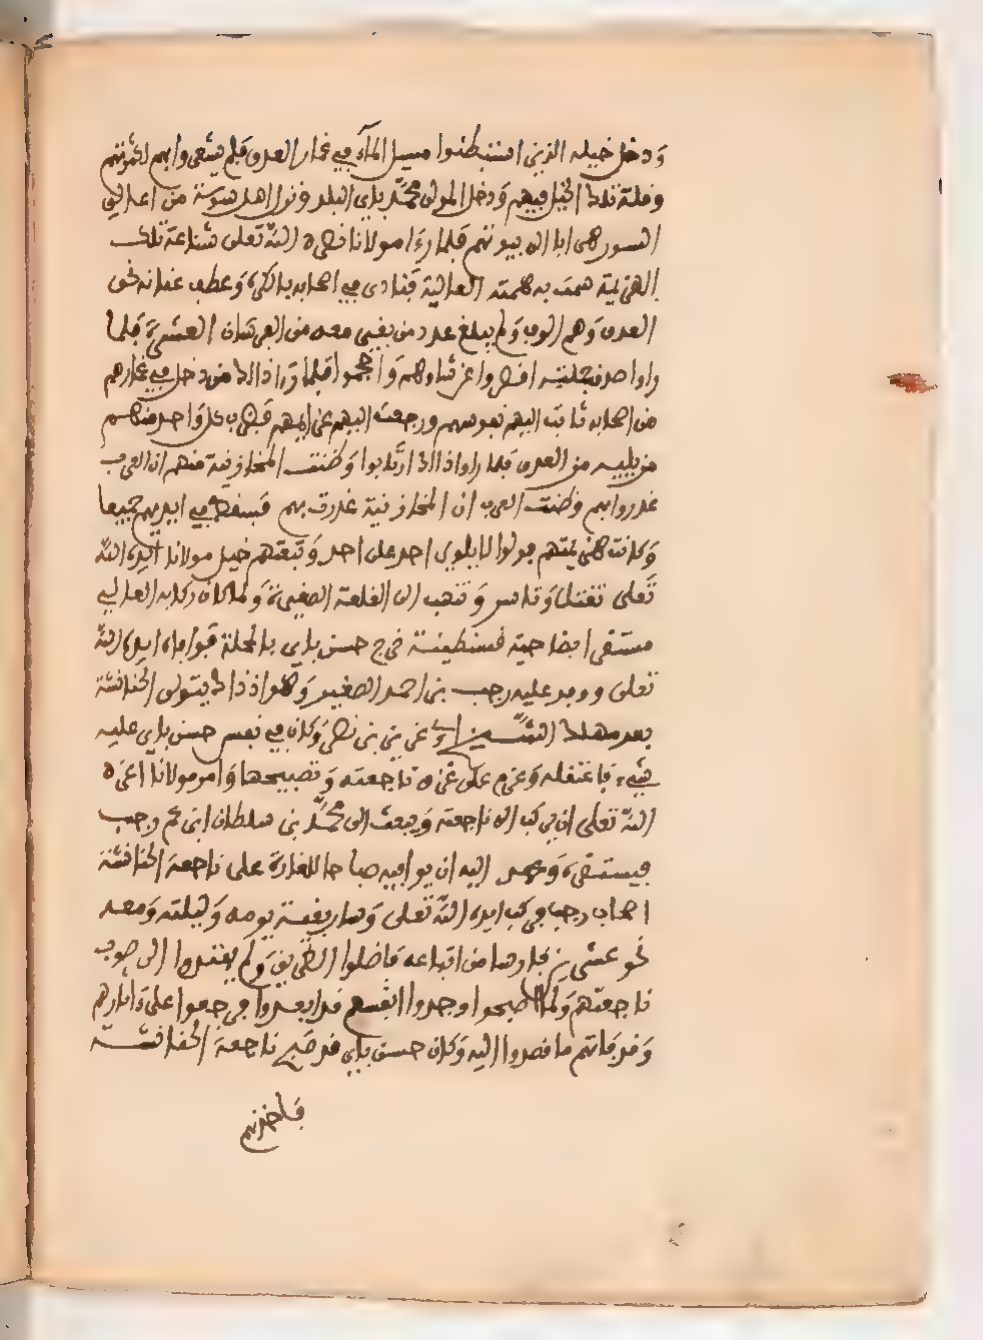 ودخل خيله الذين استبطنوا مسيل الماء في غمار العدو فلم يشعروا بهم لكثرتهم
وقلة تلك الخيل فيهم ودخل المولى محمد باي البلد ونزل اهل سوسة من اعالي
السور هي ابا الى بيوتهم فلما رءا مولانا نصره الله تعلى شناعة تلك
الهزيمة همت به همته العالية فنادى في اصحابه بالكرة وعطف عنانه نحو
العدو وهم الوف ولم يبلغ عدد من بقي معه من الفرسان العشرة فلما
راوا صدق حملته اقصروا عن شاوهم واحجموا فلما رءا ذالك من دخل في غمارهم
من اصحابه ثابت اليهم نفوسهم ورجعت اليهم عزايمهم فضرب كل واحد منهم
من يليه من العدو فلما راوا ذالك ارتابوا وظنت المخازنية منهم ان العرب
غدروا بهم وظنت العرب ان المخازنية غدرت بهم فسقط في ايديهم جميعا
وكانت هزيمتهم فولوا لا يلوى احد على احد وتبعتهم خيل مولانا ايده الله
تعلى تقتل وتاسر وتنهب الى القلعة الصغيرة ولما كان ركابه العالي
مستقرا بضاحية قسنطينة خرج حسن باي بالمحلة فوافاه ايده الله
تعلى ووفد عليه رجب بن احمد الصغير وهو اذ ذاك يتولى الحنانشة
بعد مهلك عزيز بن نصر وكان في نفس حسن باي عليه
شيء فاعتقله وعزم على غزو ناجعته وتصبيحها وامر مولانا اعزه
الله تعلى ان يركب الى ناجعة وبعث الى محمد بن سلطان ابن عم رجب
فيستقره وعهد اليه ان يوافيه صباحا للغارة على ناجعة الحنانشة
اصحاب رجب فركب ايده الله تعلى وسار بقية يومه وليلته ومعه
نحو عشرين فارسا من اتباعه فاضلوا الطريق ولم يهتدوا الى صوب
ناجعتهم ولما اصبحوا وجدوا انفسهم قد ابعدوا فرجعوا على ءاثارهم
وقد فاتهم ما قصدوا اليه وكان حسن باي قد صبح ناجعة الحنانشة
فاخذهم